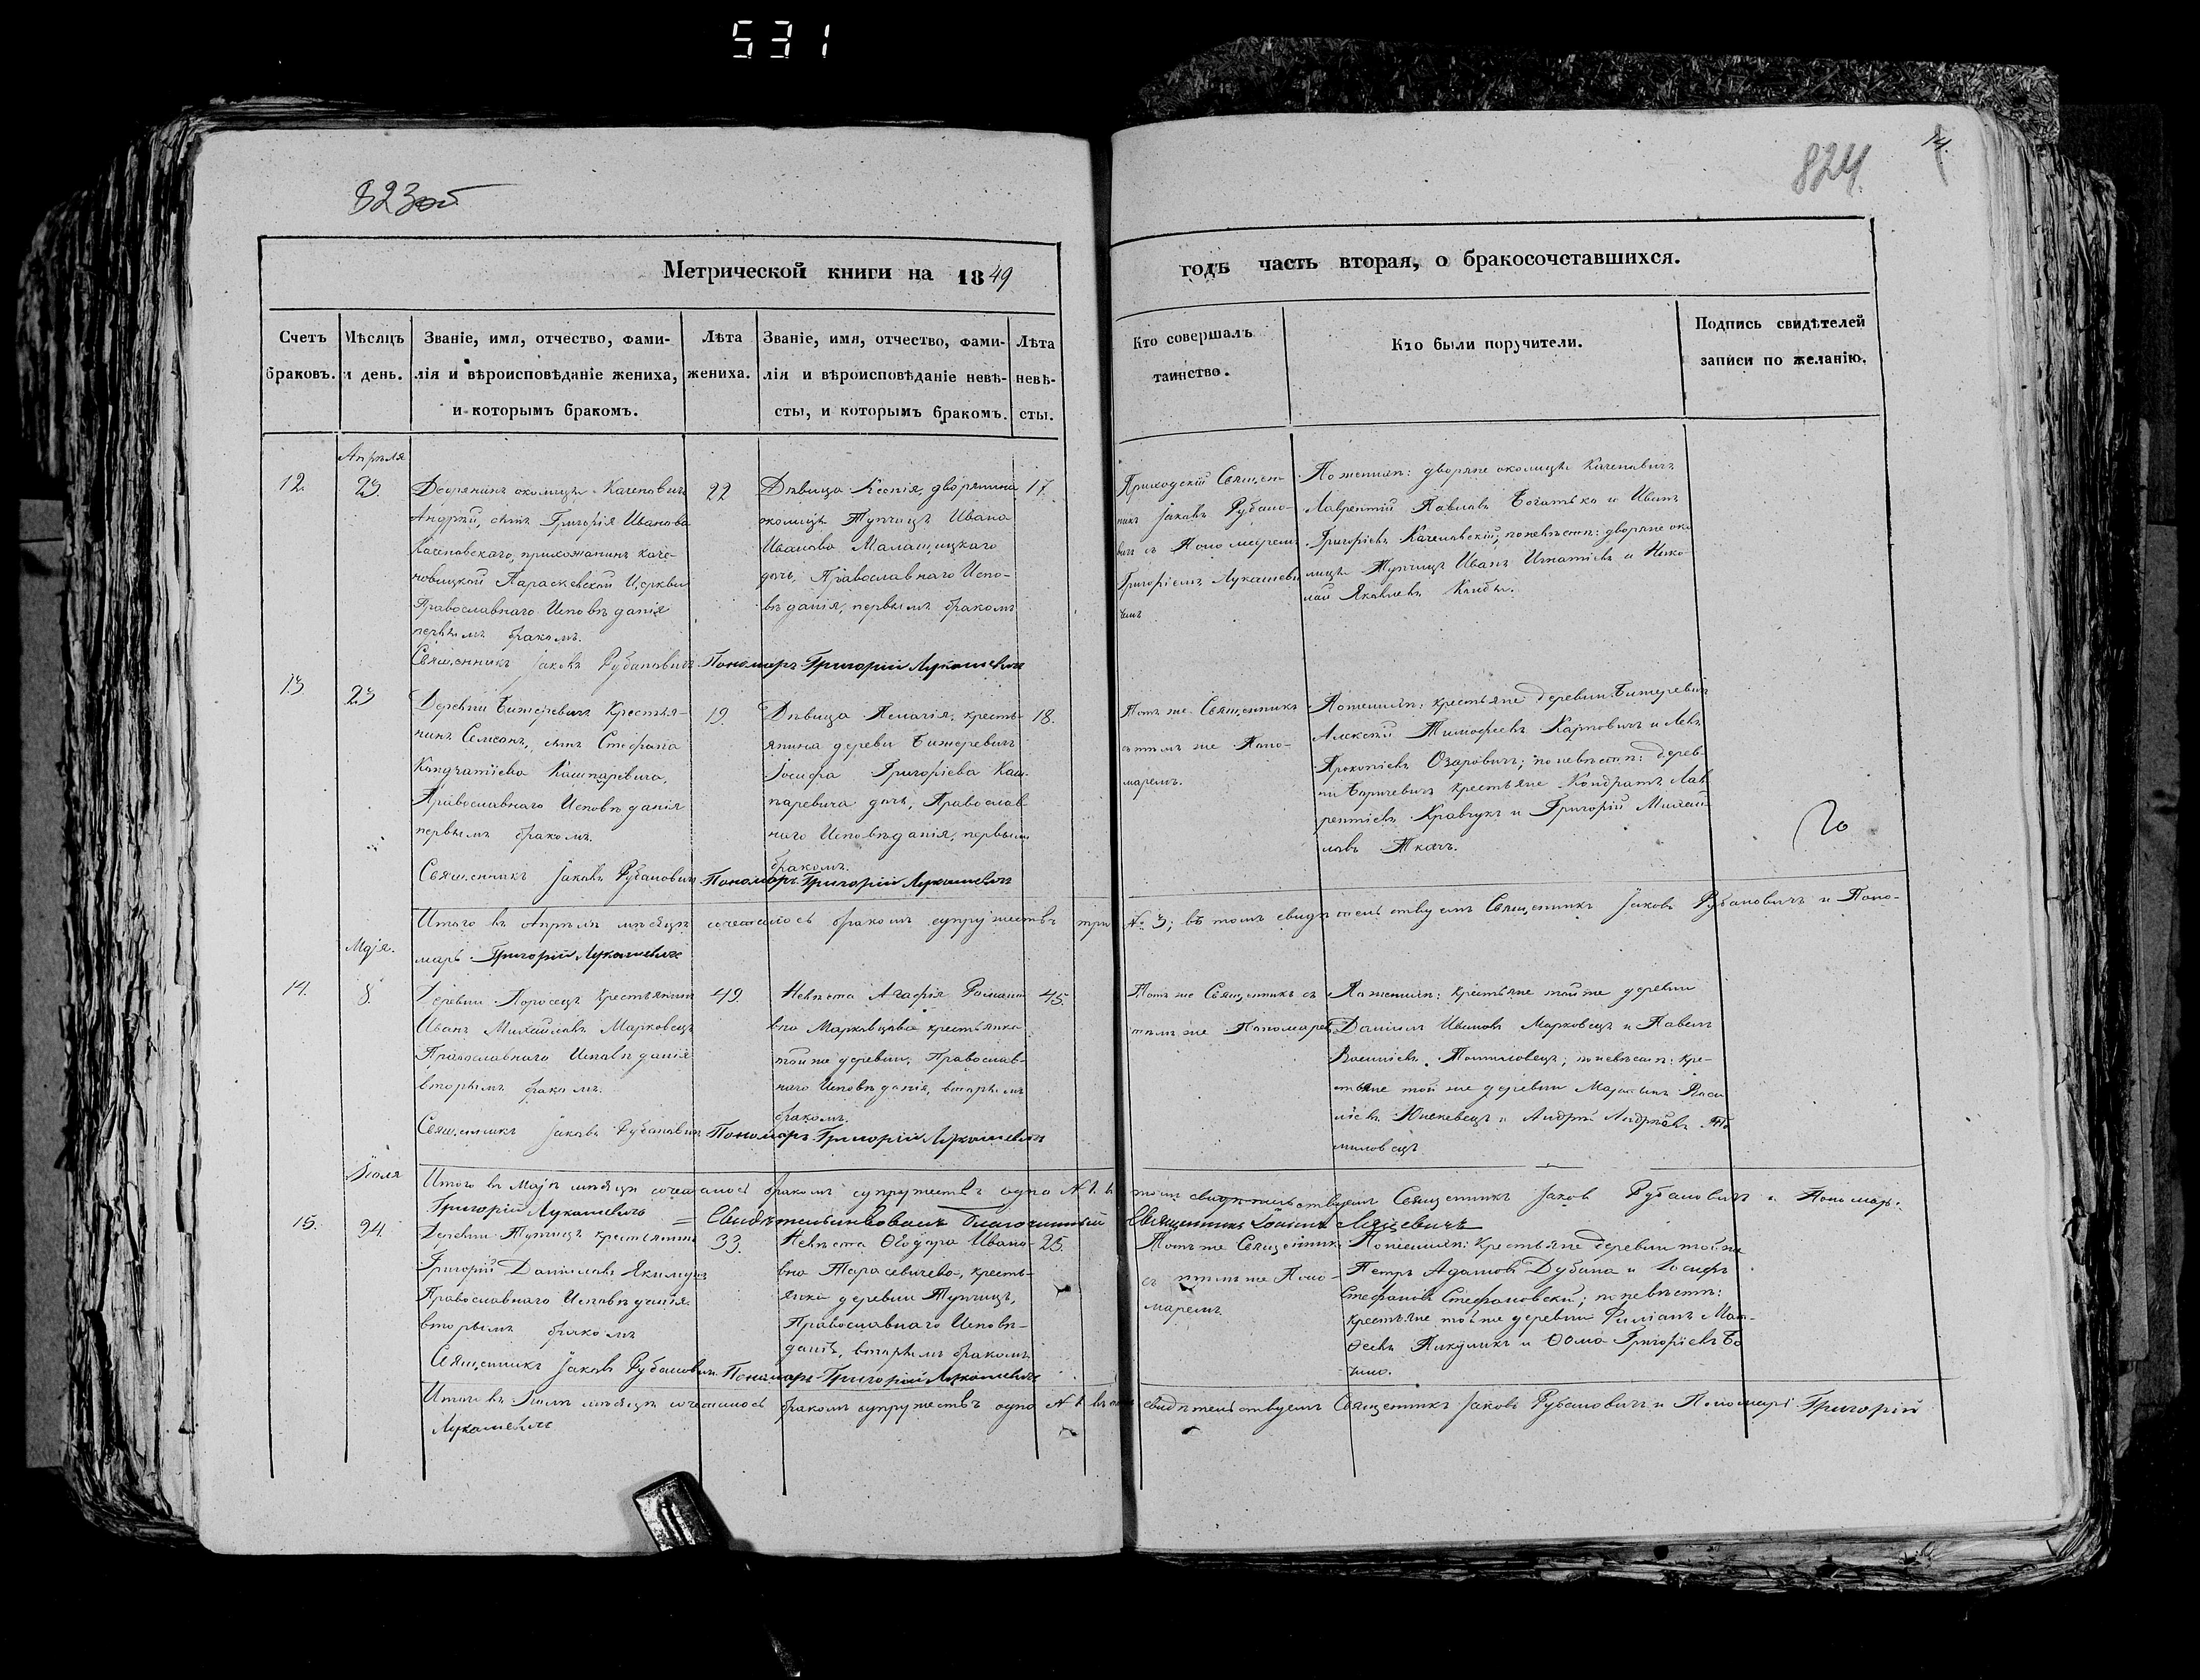 531
823об
824
14.
Метрической книги на 1849
годъ часть вторая, о бракосочетавшихся.
Счетъ браковъ.
Мѣсяцъ и день.
Званіе, имя, отчество, фами-
лія и вѣроисповѣданіе жениха,
и которымъ бракомъ.
Лѣта
жениха.
Званіе, имя, отчество, фами-
лія и вѣроисповѣданіе невѣ-
сты, и которымъ бракомъ.
Лѣта
невѣ-
сты.
Кто совершалъ
таинство.
Кто были поручители.
Подпись свидѣтелей
записи по желанію.
Апрѣля
12.
23.
Дворянинъ околицы Каченовичъ
Андрей, сынъ Григорія Иванова
Каченовскаго, прихожанинъ каче-
новицкой Параскевской Церкви
Православнаго Исповѣданія
первымъ бракомъ.
22
Дѣвица Ксенія, дворянина
околицы Тупчицъ Ивана
Иванова Малашицкаго
дочь, Православнаго Испо-
вѣданія, первымъ бракомъ
17.
Приходскій Священ-
никъ Jаковъ Рубано-
вичъ съ Пономаремъ
Григоріемъ Лукашеви
чемъ
По женихѣ: дворяне околицы Каченовичъ
Лаврентій Павловъ Богатько и Иванъ
Григоріевъ Каченовскій; по невѣстѣ: дворяне око
лицы Тупчицъ Иванъ Игнатіевъ и Нико-
лай Яковлевъ
Священникъ Jаковъ Рубановичъ Пономарь Григорій Лукашевичъ
13
23
Деревни Бижеревичъ Крестья-
нинъ Семеонъ, сынъ Стефана
Кондратіева Кашпаревича,
Православнаго Исповѣданія
первымъ бракомъ.
19.
Дѣвица Пелагія, кресть-
янина деревни Бижеревичъ
Iосифа Григоріева Каш-
паревича дочь, Православ
наго Исповѣданія, первымъ
бракомъ.
18.
Тотъ же Священникъ
съ тѣмъ же Поно-
маремъ.
По женихѣ: крестьяне деревни Бижеревичъ
Алексѣй Тимофеевъ Карповичъ и Левъ
Прокопіевъ Озаровичъ; по невѣстѣ: дерев-
ни Бижеревичъ крестьяне Кондратъ Лав
рентіевъ Кравчукъ и Григорій Михай-
ловъ Ткачъ.
Священникъ Jаковъ Рубановичъ Пономарь Григорій Лукашевичъ
Итого въ Апрѣлѣ мѣсяцѣ сочеталось бракомъ супружествъ три № 3; въ томъ свидѣтельствуемъ Священникъ Jаковъ Рубановичъ и Поно-
марь Григорій Лукашевичъ
Маjя.
14.
8.
Деревни Поросецъ Крестьянинъ
Иванъ Михайловъ Марковецъ
Православнаго Исповѣданія
вторымъ бракомъ.
49.
Невѣста Агафія Романо
вна Марковцова крестьянка
той же деревни, Православ-
наго Исповѣданія, вторымъ
бракомъ.
45.
Тотъ же Священникъ съ
тѣмъ же Пономаремъ
По женихѣ: крестьяне той же деревни
Даніилъ Ивановъ Марковецъ и Павелъ
Василіевъ Томиловецъ; по невѣстѣ: кре-
стьяне той же деревни Мартынъ Васи
ліевъ Юшкевецъ и Андрей Андреевъ То
миловецъ
Священникъ Jаковъ Рубановичъ Пономарь Григорій Лукашевичъ
Итого въ Маjѣ мѣсяцѣ сочеталось бракомъ супружествъ одно № 1. въ томъ свидѣтельствуемъ Священникъ Jаковъ Рубановичъ и Пономарь
Григорій Лукашевичъ = Свидѣтельствовалъ Благочинный Священникъ Iоаннъ
Iюля
15.
24.
Деревни Тупчицъ крестьянинъ
Григорій Даніиловъ
Православнаго Исповѣданія
вторымъ бракомъ
33.
Невѣста Ѳеодора Ивано-
вна Тарасевичева, кресть-
янка деревни Тупчицъ,
Православнаго Исповѣ-
данія, вторымъ бракомъ
25.
Тотъ же Священникъ
съ тѣмъ же Поно-
маремъ.
По женихѣ: крестьяне деревни той же
Петръ Адамовъ Дубина и Iосифъ
Стефановъ Стефановскій; по невѣстѣ:
крестьяне той же деревни Филіанъ Мат-
ѳеевъ Пикуликъ и Ѳома Григоріевъ
Священникъ Jаковъ Рубановичъ Пономарь Григорій Лукашевичъ
Итого въ Iюлѣ мѣсяцѣ сочеталось бракомъ супружествъ одно № 1. въ томъ свидѣтельствуемъ Священникъ Jаковъ Рубановичъ и Пономарь Григорій
Лукашевичъ